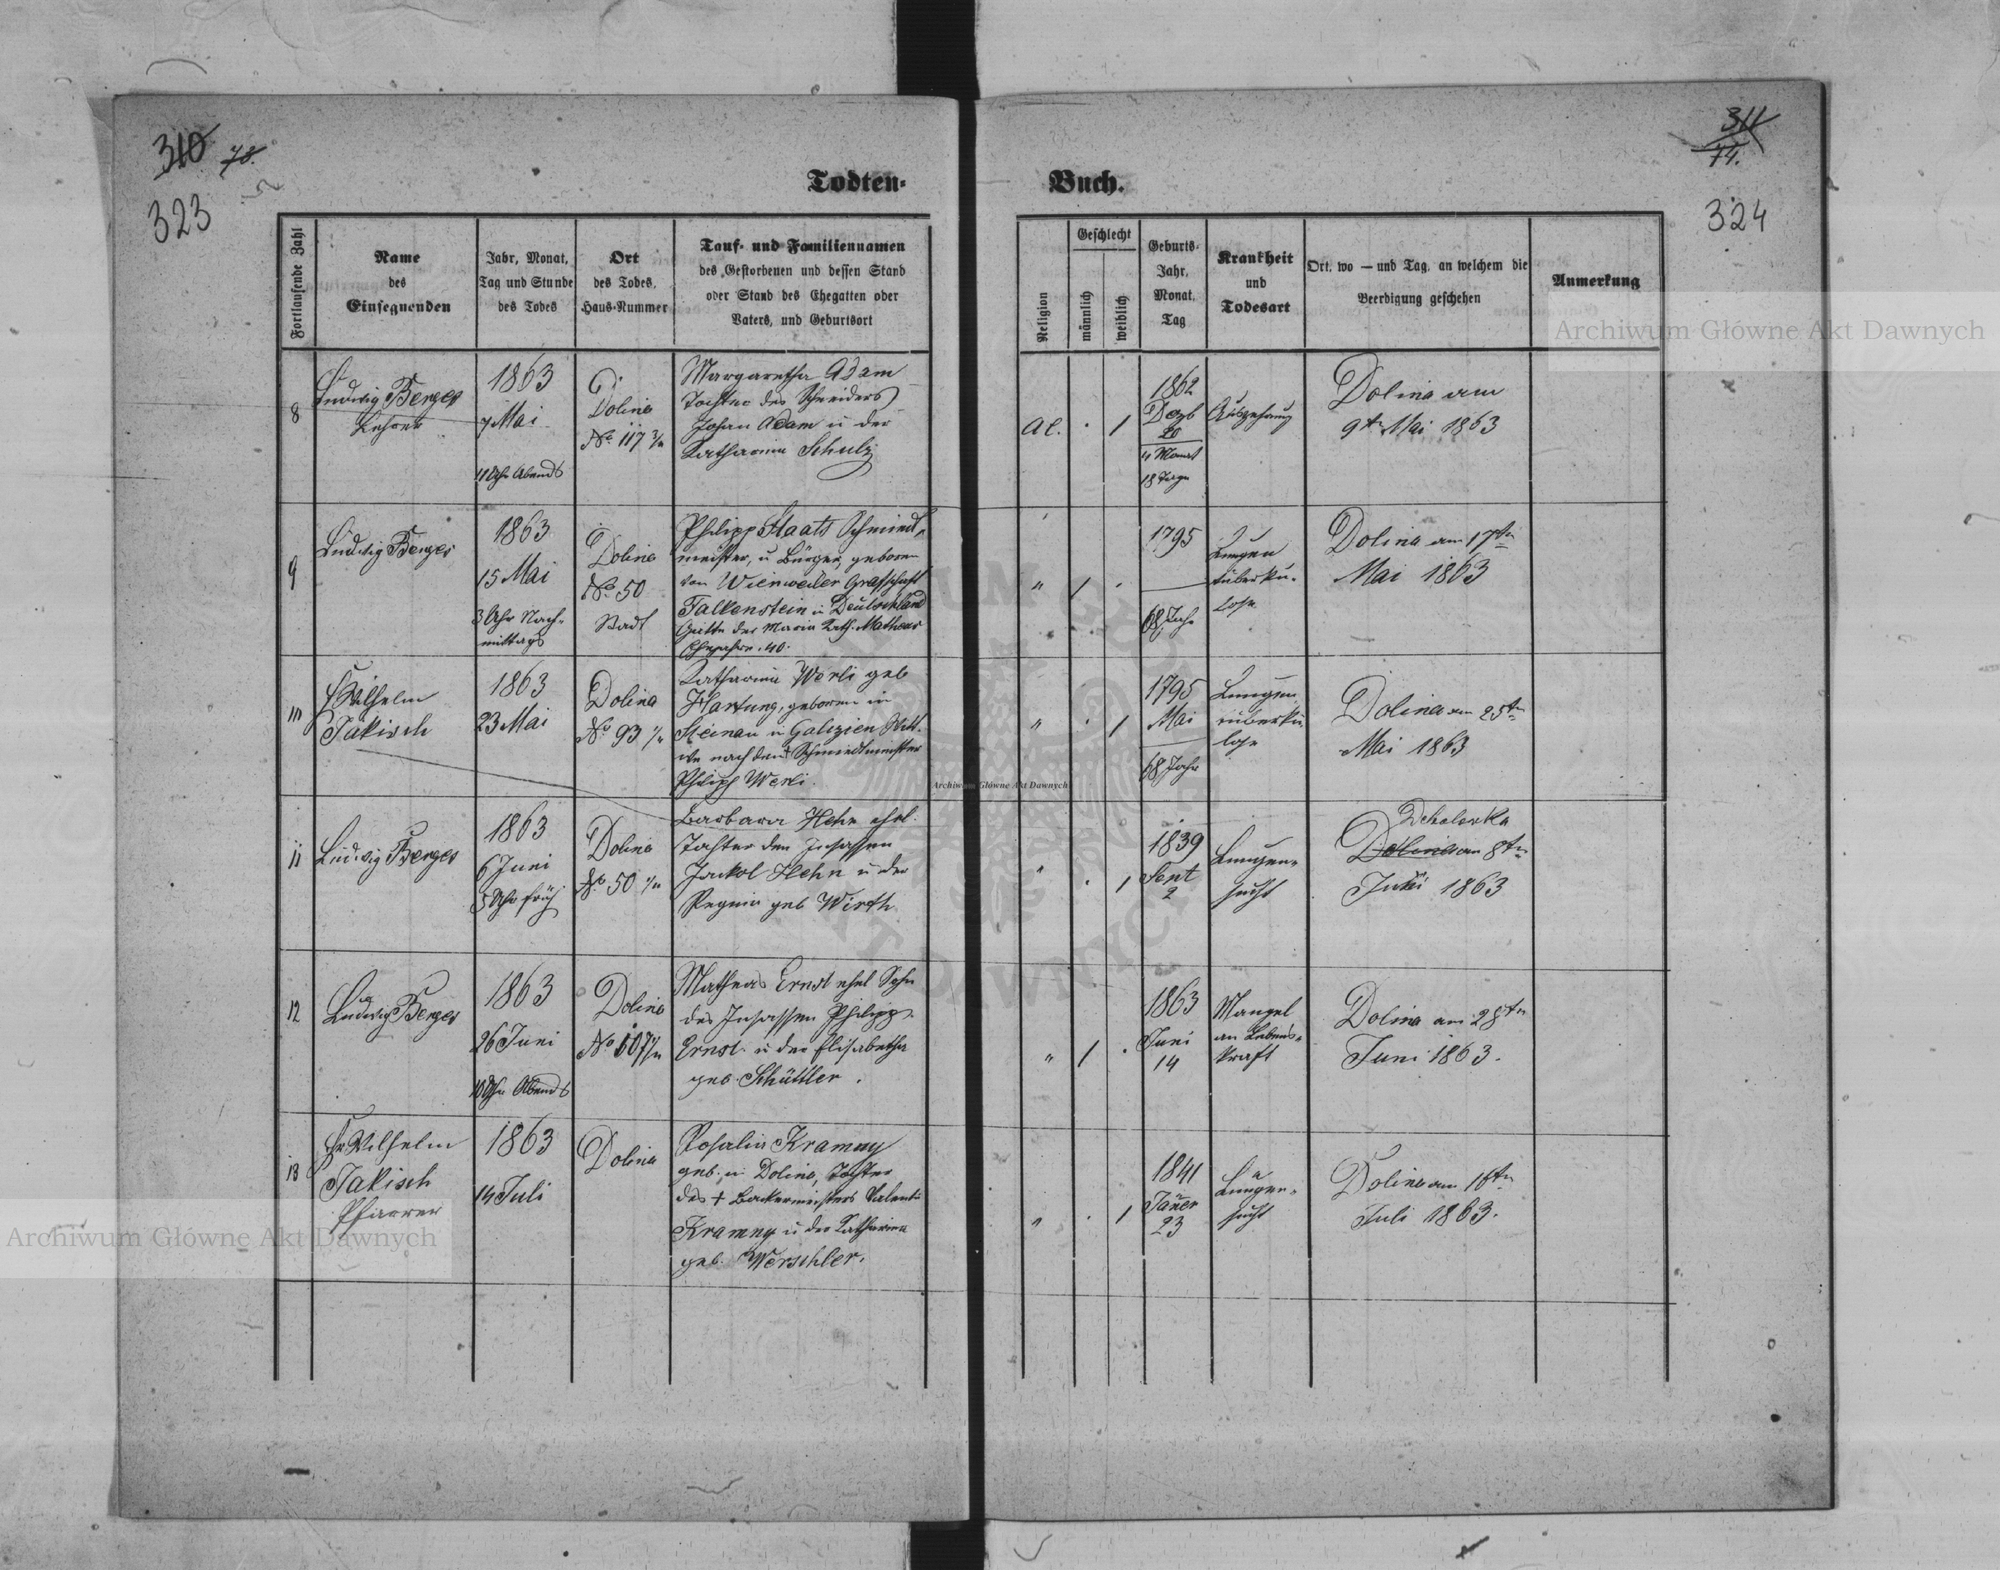 310 78.
323
311
74.
324
Todten-
Buch.
Fortlaufende Zahl
Name
des
Einsegnenden
Jahr, Monat,
Tag und Stunde
des Todes
Ort
des Todes,
Haus-Nummer
Tauf- und Familiennamen
des Gestorbenen und dessen Stand
oder Stand des Ehegatten oder
Vaters, und Geburtsort
Religion
Geschlecht
männlich
weiblich
Geburts-
Jahr,
Monat,
Tag
Krankheit
und
Todesart
Ort, wo — und Tag, an welchem die
Beerdigung geschehen
Anmerkung
8
Ludwig Berger
Lehrer
1863
7 Mai
11 Uhr Abends
Dolina
No 117
Margaretha Adam
Tochter des Schneiders
Johan Adam u der
Katharina Schulz
A C.
1
1862
Dezb
20
4 Monat
18 Tage
Auszehrung
Dolina am
9ten Mai 1863
9
Ludwig Berger
1863
15 Mai
3 Uhr Nach-
mittags
Dolina
No 50
Stadt
Philipp Staats Schmied-
meister, u Bürger, geboren
von Wienweiler Grafschaft
Falkenstein in Deutschland
Gatte der Maria Kath. Matheus
Ehejahre 40.
"
1
1795
68 Jahr
Lungen
tuberku-
lose
Dolina am 17ten
Mai 1863
10
Wilhelm
Jakisch
1863
23 Mai
Dolina
No 93
Katharina Werli geb
Hartung, geboren in
Steinau in Galizien Witt-
we nach dem + Schmiedmeister
Philipp Werli.
"
1
1795
Mai
68 Jahr
Lungen
tuberku
lose
Dolina am 25ten
Mai 1863
11
Ludwig Berger
1863
6 Juni
5 Uhr früh
Dolina
No 50
Barbara Hehn ehel.
Tochter des Insassen
Jackol Hehn u der
Regina geb Wirth
"
1
1839
Sept
2
Lungen-
sucht
Dolina am 8ten
Juni 1863
12
Ludwig Berger
1863
26 Juni
10 Uhr Abends
Dolina
No 107
Matheas Ernst ehel Sohn
des Insassen Philipp
Ernst u der Elisabetha
geb. Schüttler.
"
1
1863
Juni
14
Mangel
an Lebens-
kraft
Dolina am 28ten
Juni 1863.
13
Wilhelm
Jakisch
Pfarrer
1863
14 Juli
Dolina
Rosalia Kramny
geb. in Dolina, Tochter
des + Bäckermeisters Valentin
Kramny u der Katharina
geb. Werschler.
"
1
1841
Jäner
23
Lungen-
sucht
Dolina am 16ten
Juli 1863.
Archiwum Główne Akt Dawnych
Archiwum Główne Akt Dawnych
Archiwum Główne Akt Dawnych